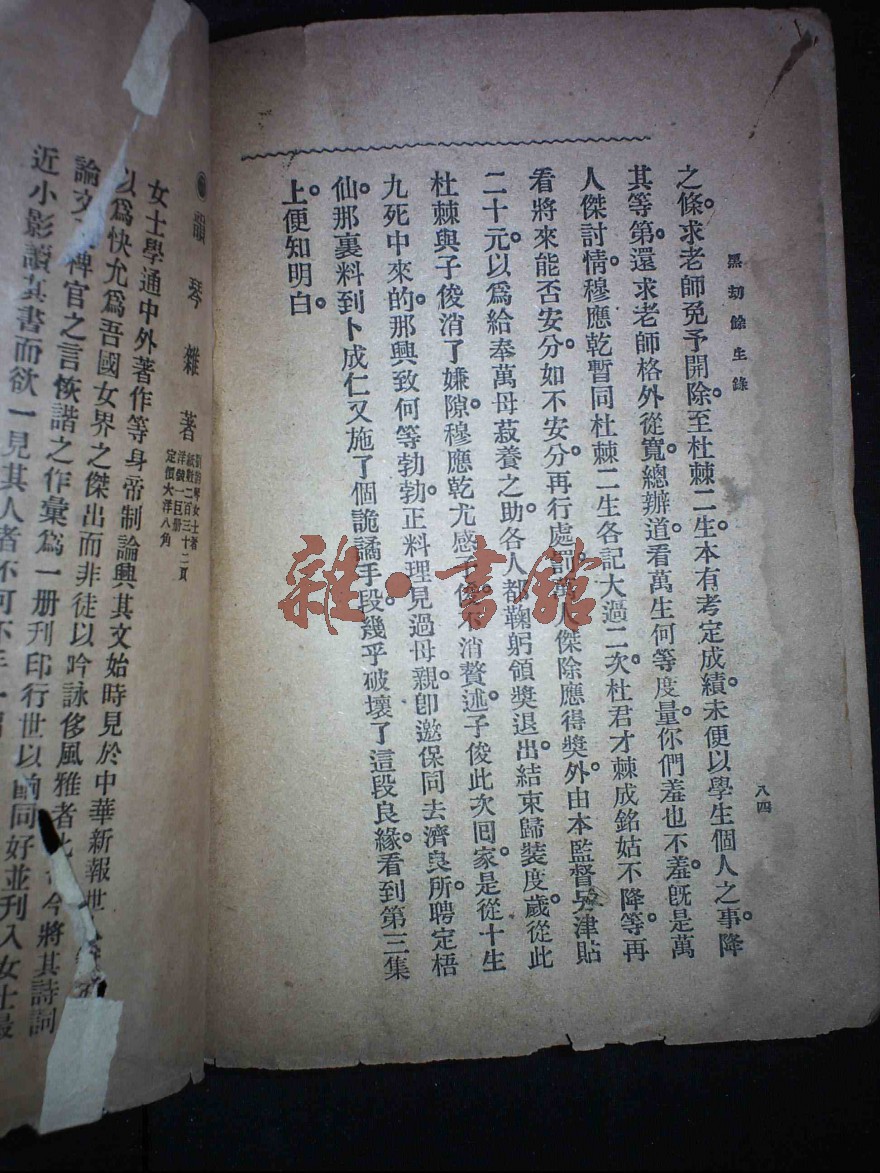 黑劫餘生錄
八四
之條。求老師免予開除。至杜棘二生。本有考定成績。未便以學生個人之事。降
其等第。還求老師格外從寬。總辦道。看萬生何等度量。你們羞也不羞。旣是萬
人傑討情。穆應乾暫同杜棘二生各記大過二次。杜君才棘成銘姑不降等。再
看將來能否安分。如不安分。再行處罰。萬人傑除應得獎外。由本監督另津貼
二十元。以爲給奉萬母菽養之助。各人都鞠躬領獎退出。結束歸裝度歲。從此
杜棘與子俊消了嫌隙。穆應乾尤感子俊。不消贅述。子俊此次囘家。是從十生
九死中來的。那興致何等勃勃。正料理見過母親。卽邀保同去濟良所。聘定梧
仙。那裏料到卜成仁又施了個詭譎手段。幾乎破壞了這段良緣。看到第三集
上。便知明白。
韻琴雜著
紙數二百三十二頁
洋裝一巨册
定價大洋八角
女士學通中外著作等身帝制論興其文始時見於中華新報世
以爲快允爲吾國女界之傑出而非徒以吟詠侈風雅者比 今將其詩詞
論文 稗官之言恢諧之作彙爲一册刊印行世以 同好並刊入女士最
近小影讀其書而欲一見其人者不可不 一
雜·書館